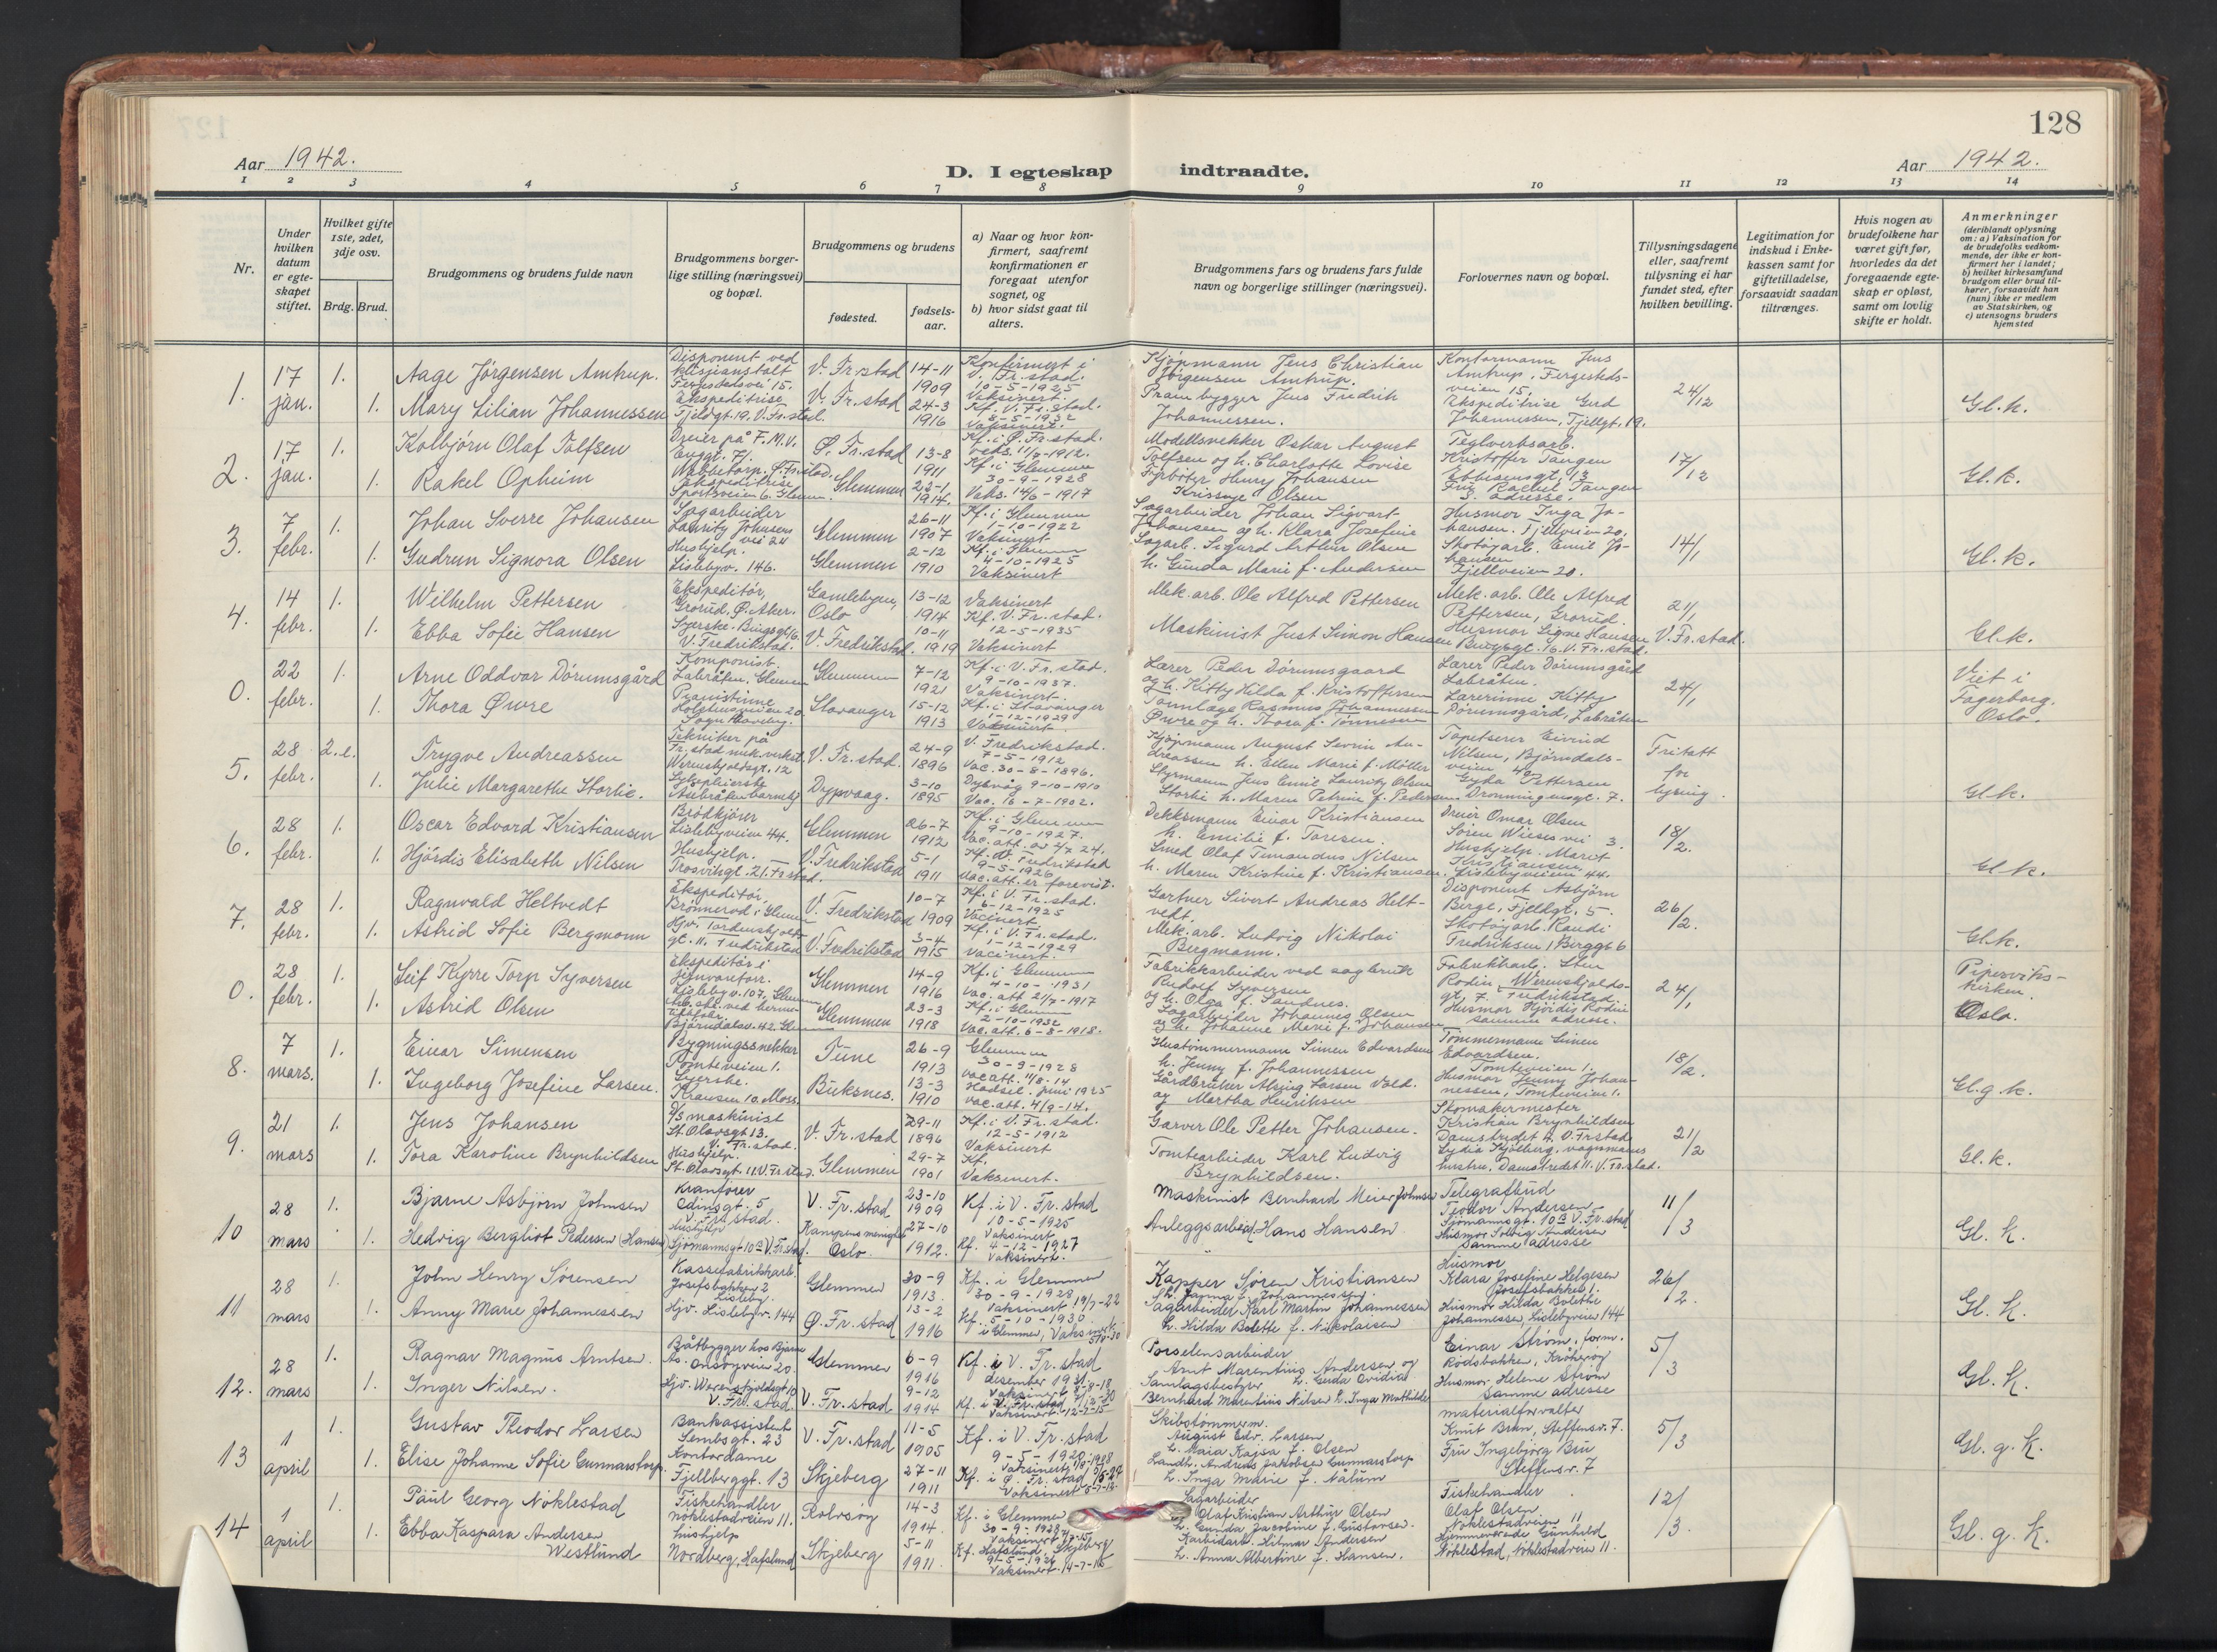 128
Aar 1942.
D. I egteskap indtraadte.
Aar 1942.
1 2 3 4 5 6 7 8 9 10 11 12 13 14
Nr.
Under hvilken datum er egteskapet stiftet.
Hvilket gifte 1ste, 2det, 3dje osv.
Brdg. Brud.
Brudgommens og brudens fulde navn
Brudgommens borgerlige stilling (næringsvei) og bopæl.
Brudgommens og brudens
fødested.
fødselsaar.
a) Naar og hvor konfirmert, saafremt konfirmationen er foregaat utenfor sognet, og
b) hvor sidst gaat til alters.
Brudgommens fars og brudens fars fulde navn og borgerlige stillinger (næringsvei).
Forlovernes navn og bopæl.
Tillysningsdagene eller, saafremt tillysning ei har fundet sted, efter hvilken bevilling.
Legitimation for indskud i Enkekassen samt for giftetilladelse, forsaavidt saadan tiltrænges.
Hvis nogen av brudefolkene har været gift før, hvorledes da det foregaaende egteskap er opløst, samt om lovlig skifte er holdt.
Anmerkninger
(deriblandt oplysning om: a) Vaksination for de brudefolks vedkommende, der ikke er konfirmert her i landet;
b) hvilket kirkesamfund brudgom eller brud tilhører, forsaavidt han (hun) ikke er medlem av Statskirken, og
c) utensogns bruders hjemsted
1. 17 jan. 1. Aage Jørgensen Amtrup. Disponent ved Fergestedsvei 15. V. Fr.stad 14-11 1909 Konfirmert i V. Fr.stad. 10-5-1925 Vaksinert.
Kjøpmann Jens Christian Jørgensen Amtrup. Kontormann Jens Amtrup, Fergestedsveien 15, 24/12 Gl.k.
1. Mary Lilian Johannessen Ekspeditrise Fjeldgt. 19. V. Fr.stad. V. Fr.stad 24-3 1916 Kf. V. Fr.stad. 8-5-1932 Vaksinert.
Prambygger Jens Fredrik Johannessen. Ekspeditrise Gerd Johannessen, Fjellgt. 19.
2. 17 jan. 1. Kolbjørn Olaf Tolfsen Dreier på F.M.V. Ø. Fr.stad 13-8 1911 Kf. i Ø. Fr.stad.
Modellsnekker Oskar August Tolfsen og h. Charlotte Lovise Teglverksarb. Kristoffer Tangen 17/12 Gl.k.
1. Rakel Opheim Ekspeditrise Sportsveien 6. Glemmen. Glemmen 23-1 1914. Kf. i Glemmen 30-9-1928 Vaks. 14/6-1917
Fyrbøter Henry Johansen Olsen Fru Rachel Tangen S. adresse.
3. 7 febr. 1. Johan Sverre Johansen Sagarbeider Lauritz Johnsens vei 24 Glemmen 26-11 1907 Kf. i Glemmen 1-10-1922 Vaksinert
Sagarbeider Johan Sigvart Johansen og h. Klara Josefine Husmor Inga Johansen. Fjellveien 20. 14/1 Gl.k.
1. Gudrun Signora Olsen Hushjelp. Lislebyv. 146. Glemmen 2-12 1910 Kf. i Glemmen 4-10-1925 Vaksinert
Sagarb. Sigurd Arthur Olsen h. Gunda Marie f. Andersen Skotøyarb. Emil Johansen Fjellveien 20.
4. 14 febr. 1. Wilhelm Pettersen Ekspeditør, Grorud, Ø. Aker. Gamlebyen, Oslo 13-12 1914 Vaksinert
Mek. arb. Ole Alfred Pettersen Mek. arb. Ole Alfred Pettersen, Grorud. 21/1 V. Fr.stad. Gl.k.
1. Ebba Sofie Hansen Syerske. V. Fredrikstad. V. Fredrikstad. 10-11 1919 Kf. V. Fr.stad. 12-5-1935 Vaksinert
Maskinist Just Simon Hansen Husmor Signe Hansen V. Fr.stad.
0. 22 febr. 1. Arne Oddvar Dørumsgård Komponist. Labråten, Glemmen Glemmen 7-12 1921 Kf. i V. Fr.stad. 9-10-1937. Vaksinert.
Lærer Peder Dørumsgaard og h. Kitty Hilda f. Kristoffersen Lærer Peder Dørumsgård Labråten. 24/1 Viet i Fagerborg. Oslo.
1. Thora Øwre Pianistinne Stavanger 15-12 1913 Kf. i Stavanger 1-12-1929 Vaksinert.
Tannlæge Rasmus Johannessen Øwre og h. Thora f. Tønnesen Lærerinne Kitty Dørumsgård, Labråten
5. 28 febr. 2. e. Trygve Andreassen Tekniker på Fr.stad mek. verksted. Werenskjoldsgt. 12 V. Fr.stad. 24-9 1896 V. Fredrikstad. 7-5-1912 Vac. 30-8-1896.
Kjøpmann August Sevrin Andreassen h. Ellen Marie f. Møller Tapetserer Eivind Nilsen, Bjørndalsveien 40. Fritatt for lysing. Gl.k.
1. Julie Margarethe Storlie. Sykepleierske Dypvaag. 3-10 1895 Dypvåg 9-10-1910 Vac. 16-7-1902.
Styrmann Jens Emil Lauritz Olsen Storlie h. Maren Petrine f. Pedersen. Gyda Pettersen Dronningensgt. 7.
6. 28 febr. 1. Oscar Edvard Kristiansen Brødkjører Lislebyveien 44. Glemmen 26-7 1912 Kf. i Glemmen 9-10-1927. Vac. att. av 4/7 24.
Dekksmann Einar Kristiansen h. Emilie f. Toresen. Dreier Omar Olsen Søren Wieses vei 3. 18/2. Gl.k.
1. Hjørdis Elisabeth Nilsen Hushjelp. Trosvikgt. 21. Fr.stad. V. Fredrikstad 5-1 1911 Kf. V. Fredrikstad 9-5-1926 Vac. att. er forevist.
Smed Olaf Timandus Nilsen h. Maren Kristine f. Kristiansen. Hushjelp Marit Kristiansen Lislebyveien 44.
7. 28 febr. 1. Ragnvald Heltvedt Ekspeditør, Brønnerød i Glemmen V. Fredrikstad 10-7 1909 Kf. i V. Fr.stad. 6-12-1925 Vacinert.
Gartner Sivert Andreas Heltvedt. Disponent Asbjørn Berge, Fjellgt. 5. 26/2. Gl.k.
1. Astrid Sofie Bergmann Hjv. Tordenskjoldsgt. 11. Fredrikstad V. Fredrikstad 3-4 1915 Kf. i V. Fr.stad. 1-12-1929 Vacinert.
Mek. arb. Ludvig Nikolai Bergmann. Skotøyarb. Randi Fredriksen
0. 28 febr. 1. Leif Kyrre Torp Syversen Ekspeditør i Lislebyv. 107, Glemmen Glemmen 14-9 1916 Kf. i Glemmen 4-10-1931 Vac. att 21/7-1917
Fabrikkarbeider ved sagbruk Rudolf Syversen og h. Olga f. Sandnes. Fabrikkarb. Sten Rodin, Werenskjoldsgt. 7. Fredrikstad. 24/1 Pipervikskirken. Oslo.
1. Astrid Olsen Bjørndalsv. 42. Glemmen Glemmen 23-3 1918 Kf. i Glemmen 2-10-1932 Vac. att. 6-8-1918.
Sagarbeider Johannes Olsen og h. Johanne Marie f. Johansen Husmor Hjørdis Rodin samme adresse.
8. 7 mars. 1. Einar Simensen Bygningssnekker Tomteveien 1. Tune 26-9 1913 Glemmen 30-9-1928 vac att. 11/8-14
Hustømmermann Simen Edvardsen h. Jenny f. Johannessen Tømmermann Simen Edvardsen. Tomteveien 1. 18/2. Gl.g.k.
1. Ingeborg Josefine Larsen. Syerske. Kransen 10. Moss. Buksnes. 13-3 1910 Hadsel. juni 1925 vac. att. 4/9-14.
Gårdbruker Alsing Larsen Vold. og Martha Henriksen Husmor Jenny Johannessen, Tomteveien 1.
9. 21 mars 1. Jens Johansen D/S maskinist St. Olavsgt 13. V. Fr.stad. V. Fr.stad 29-11 1896 Kf. i V. Fr.stad. 12-5-1912 Vaksinert
Garver Ole Petter Johansen. Skomakermester Kristian Brynhildsen Damstredet 4. V. Fr.stad 21/2 Gl.k.
1. Tora Karoline Brynhildsen Hushjelp. St. Olavsgt. 11. V. Fr.stad. Glemmen 29-7 1901 Kf. Vaksinert.
Tomtearbeider Karl Ludvig Brynhildsen. Lydia Kjølberg, vognmanns hustru, Damstredet 11. V. Fr.stad.
10 28 mars 1. Bjarne Asbjørn Johnsen Kranfører Edinsgt. 5 V. Fr.stad. V. Fr.stad 23-10 1909 Kf. i V. Fr.stad 10-5-1925 Vaksinert
Maskinist Bernhard Meier Johnsen Telegrafbud Teodor Andersen Sjømannsgt. 10 B V. Fr.stad 11/3 Gl. k.
1. Hedvig Bergliot Pedersen (Hansen) Hushjelp Sjømannsgt 10 B V. Fr.stad. Kampens menighet Oslo. 27-10 1912. Kf. 4-12-1927 Vaksinert.
Anleggsarbeid. Hans Hansen Husmor Solveig Andersen Samme adresse
11 28 mars 1. John Henry Sørensen Kassefabrikkarb. Josefsbakken 2 Lisleby. Glemmen 30-9 1913. Kf. i Glemmen 30-9-1928 Vaksinert 19/7-22
Kapper Søren Kristiansen h. Janna f. Johannessen. Husmor Klara Josefine Helgesen Josefsbakken 1. 26/2. Gl. k.
1. Anny Marie Johannessen Hjv. Lislebyv. 144 Ø. Fr.stad 13-2 1916 Kf. 5-10-1930 i Glemmen, Vaksinert
Sagarbeider Karl Martin Johannessen h. Hilda Bolette f. Nikolaisen Husmor Hilda Bolette Johannessen, Lislebyveien 144
12. 28 mars 1. Ragnar Magnus Arntsen. Båtbygger hos Bjarne Aas. Onsøyveien 20. Glemmen 6-9 1916 Kf. i V. Fr.stad desember 1931. Vaksinert 8-8-18
Porselensarbeider Arnt Marentius Andersen og h. Guda Ovidia Einar Strøm, form. Rødsbakken, Kråkerøy 5/3 Gl. k.
1. Inger Nilsen. Hjv. Werenskjoldsgt 10 V. Fr.stad. V. Fr.stad 9-12 1914 Kf. i V. Fr.stad Vaksinert 12-7-15
Samlagsbestyrer Bernhard Marentius Nilsen h. Inga Mathilde Husmor Helene Strøm Samme adresse
13 1 april 1. Gustav Theodor Larsen Bankassistent Lembsgt. 23 V. Fr.stad 11-5 1905 Kf. i V. Fr.stad 9-5-1920 Vaksinert
Skibstømmerm. August Edv. Larsen h. Maia Kajsa f. Olsen materialforvalter Knut Bruu, Steffensv. 7. 5/3 Gl. g. k.
1. Elise Johanne Sofie Gunnarstorp. Kontordame Fjellberggt. 13 Skjeberg 27-11 1911 Kf. i Ø. Fr.stad Vaksinert
Landh. Andreas Jakobsen Gunnarstorp h. Inga Marie f. Nålum Fru Ingebjørg Bru Steffensv. 7
14 1 april 1. Paul Georg Nøklestad Fiskehandler Nøklestadveien 11. Rolvsøy 14-3 1914. Kf. i Glemmen 30-9-1928
Sagarbeider Olaf Kristian Arthur Olsen h. Gunda Jacobine f. Gustavsen. Fiskehandler Olaf Olsen Nøklestadveien 11 12/3. Gl. g. k.
1. Ebba Kaspara Andersen Westlund hushjelp Nordberg, Hafslund Skjeberg 5-11 1911. Kf. Hafslund, Skjeberg Vaksinert 14-7-16
Karbidarb. Hilmar Andersen h. Anna Albertine f. Hansen. Hjemmeværende Gunhild Nøklestad, Nøklestadveien 11.